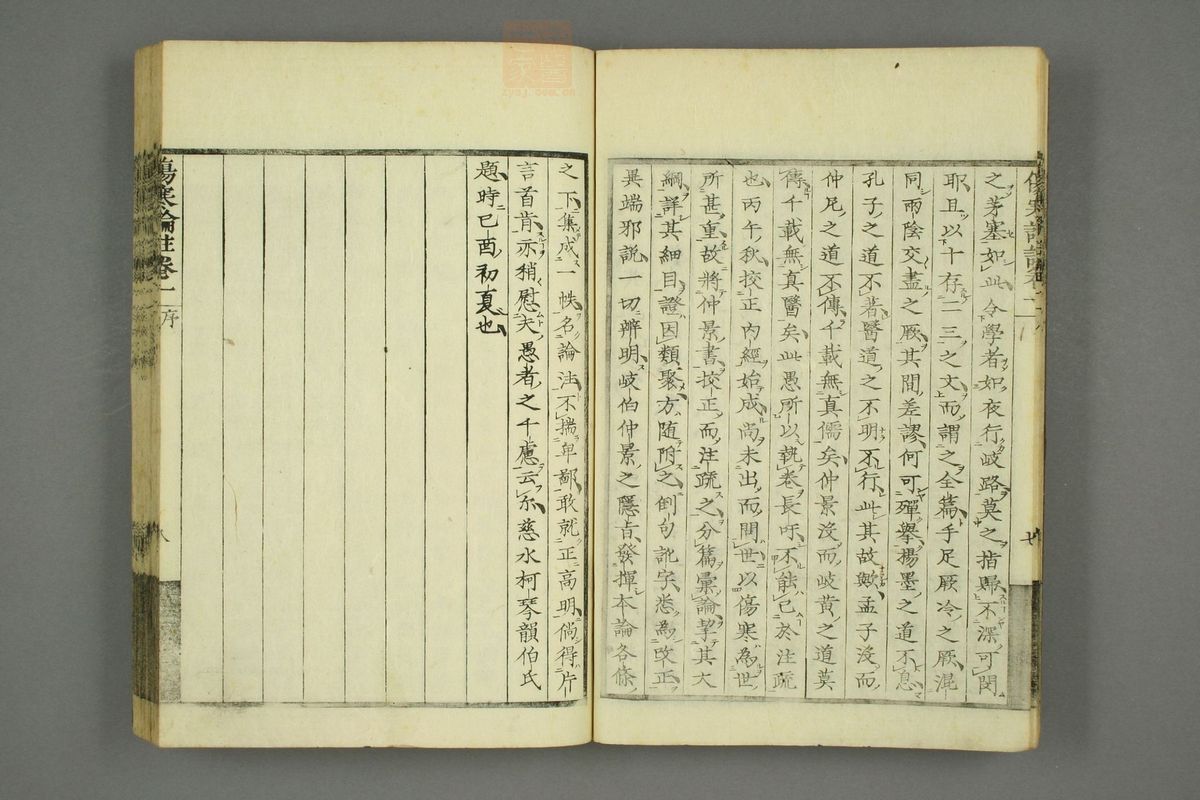 之茅塞如此令學者如夜行岐路莫之指歸不深可閔
耶且以十存二三之文而謂之全篇手足厥冷之厥混
同兩陰交盡之厥其間差謬何可殫舉楊墨之道不息
孔子之道不著醫道之不明不行此其故歟孟子沒而
仲尼之道不傳千載無真儒矣仲景沒而岐黃之道莫
傳千載無真醫矣此愚所以執卷長吁不能已於注疏
也丙午秋挍正內經始成尚未出而問世以傷寒為世
所甚重故將仲景書挍正而注疏之分篇彙論挈其大
綱詳其細目證因類聚方隨附之倒句訛字悉為改正
異端邪說一切辨明岐伯仲景之隱旨發揮本論各條
之下集成一帙名論注不揣卑鄙敢就正高明倘得片
言首肯亦稍慰夫愚者之千慮云尔慈水柯琴韻伯氏
題時己酉初夏也
傷寒論註卷一
序
八
七
zysj.com.cn